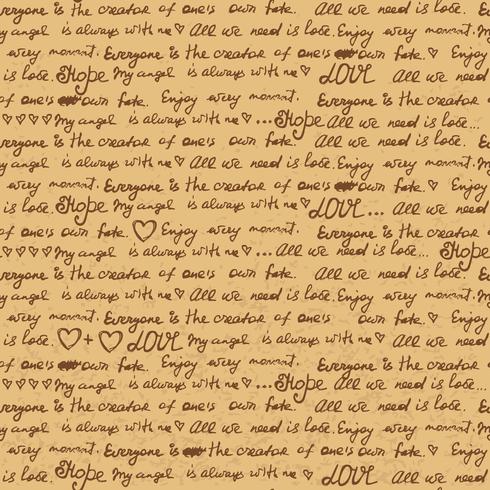 Everyone is the creator of one's own fate. All we need is lose. Enjoy
My angel is always with me ♡ All we need is lose. Enjoy every moment.
every moment. Everyone is the creator of one's own fate. ♡ Enjoy
is lose. Hope My angel is always with me ♡ LOVE All we need
of one's own fate. Enjoy every moment. Everyone is the creator
♡♡♡♡ My angel is always with me ♡...Hope All we need is lose...
everyone is the creator of one's own fate. All we need is lose. Enjoy
my angel is always with me ♡ All we need is lose. Enjoy every moment.
every moment. Everyone is the creator of one's own fate. ♡ Enjoy
is lose. Hope My angel is always with me ♡ LOVE... All we need
of one's own fate. ♡ Enjoy every moment. Everyone is the creator
♡♡♡♡ My angel is always with me ♡... All we need is lose... Hope
everyone is the creator of one's own fate. All we need is lose. Enjoy
my angel is always with me ♡ All we need is lose. Enjoy every moment.
every moment. Everyone is the creator of one's own fate. ♡ Enjoy
is lose. ♡+♡ LOVE My angel is always with me ♡ All we need
of one's own fate. Enjoy every moment. Everyone is the creator
♡♡♡♡ My angel is always with me ♡...Hope All we need is lose...
everyone is the creator of one's own fate. All we need is lose. Enjoy
my angel is always with me ♡ All we need is lose. Enjoy every moment.
every moment. Everyone is the creator of one's own fate. ♡ Enjoy
is lose. Hope My angel is always with me ♡ LOVE All we need